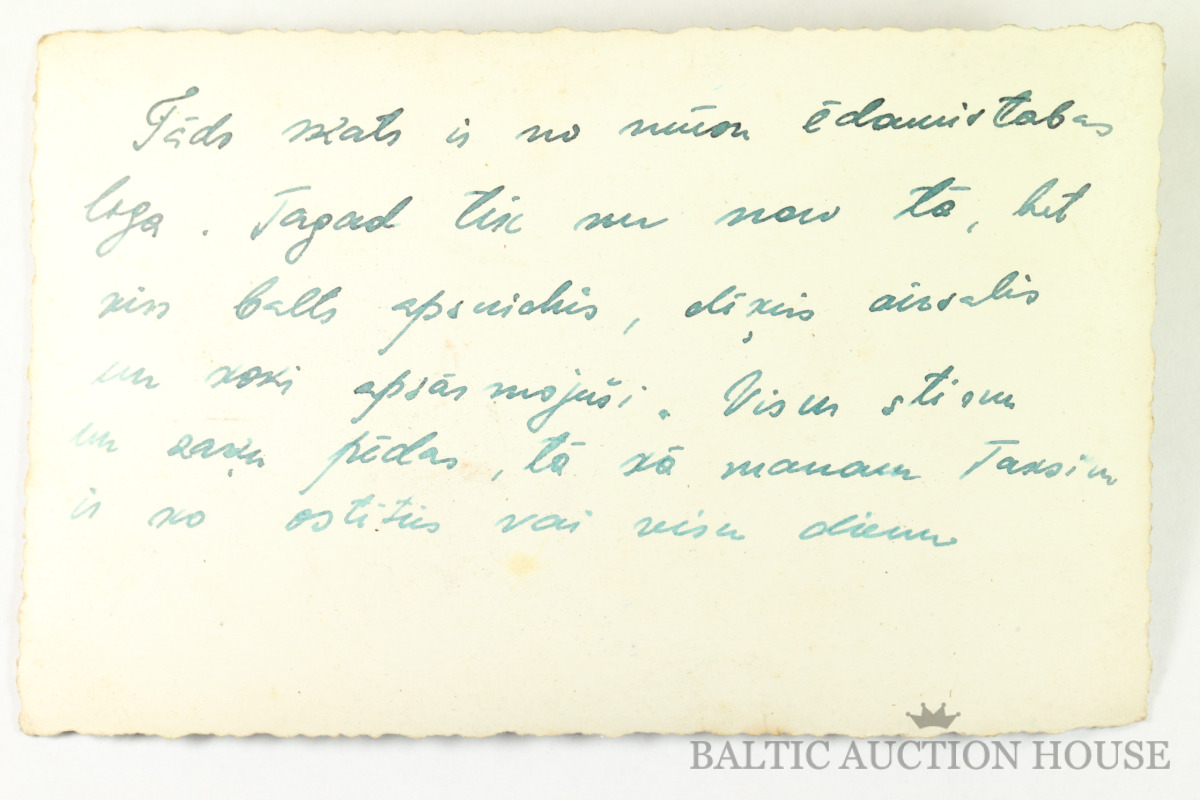 Tāds skats ir no mūsu ēdamistabas
loga. Tagad tik nu nav tā, bet
viss balts apsnidzis, dīķis aizsalis
un koki apsarmojuši. Visur stirnu
un zaķu pēdas, tā kā manam Taksim
ir ko ostīties vai visu dienu
BALTIC AUCTION HOUSE